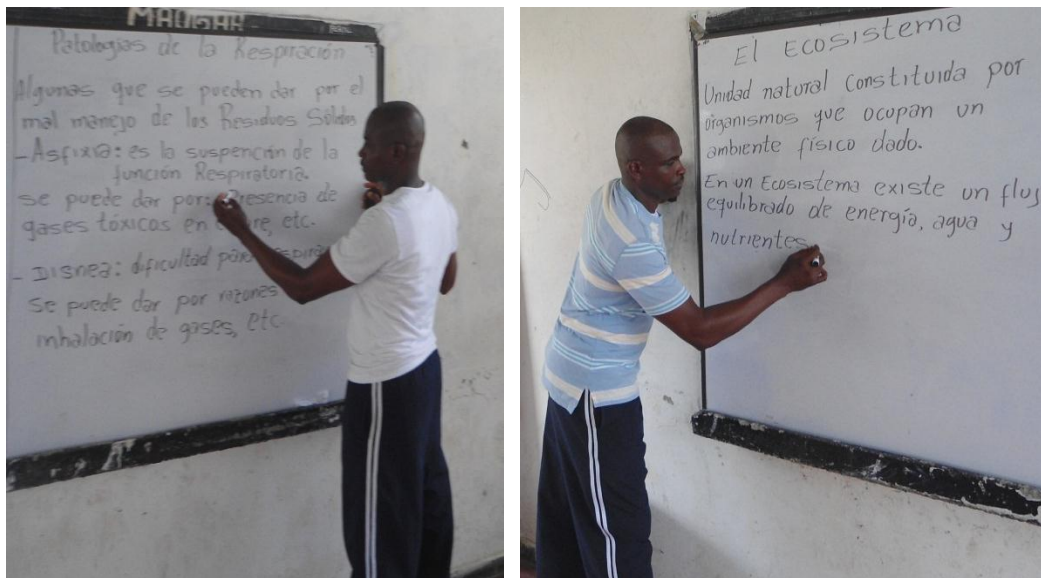 Patologías de la Respiración
Algunas que se pueden dar por el
mal manejo de los Residuos Sólidos
- Asfixia: es la suspención de la
función Respiratoria.
se puede dar por: Presencia de
gases tóxicos en re, etc.
- Disnea: dificultad para
se puede dar por razones
inhalación de gases, etc
El Ecosistema
Unidad natural constituida por
organismos que ocupan un
ambiente físico dado.
En un Ecosistema existe un fluj
equilibrado de energía, agua y
nutrientes